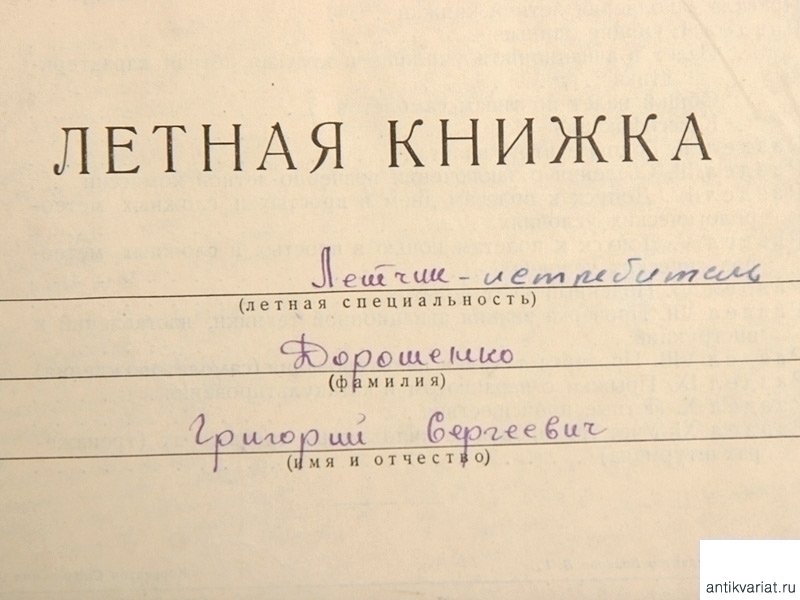 ЛЕТНАЯ КНИЖКА
Летчик - истребитель
(летная специальность)
Дорошенко
(фамилия)
Григорий Сергеевич
(имя и отчество)
antikvariat.ru